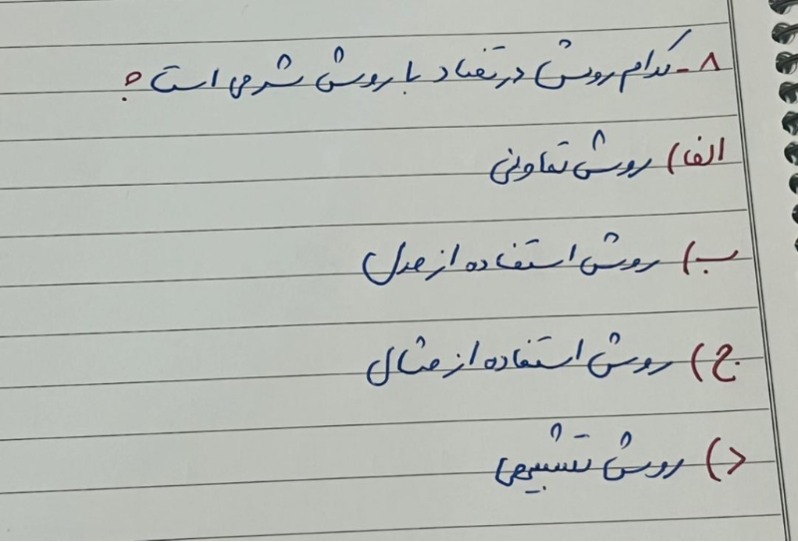 ۸- کدام روش در تضاد با روش شرحی است؟
الف) روش تعاونی
ب) روش استفاده از مدل
ج) روش استفاده از مثال
د) روش تشبیهی